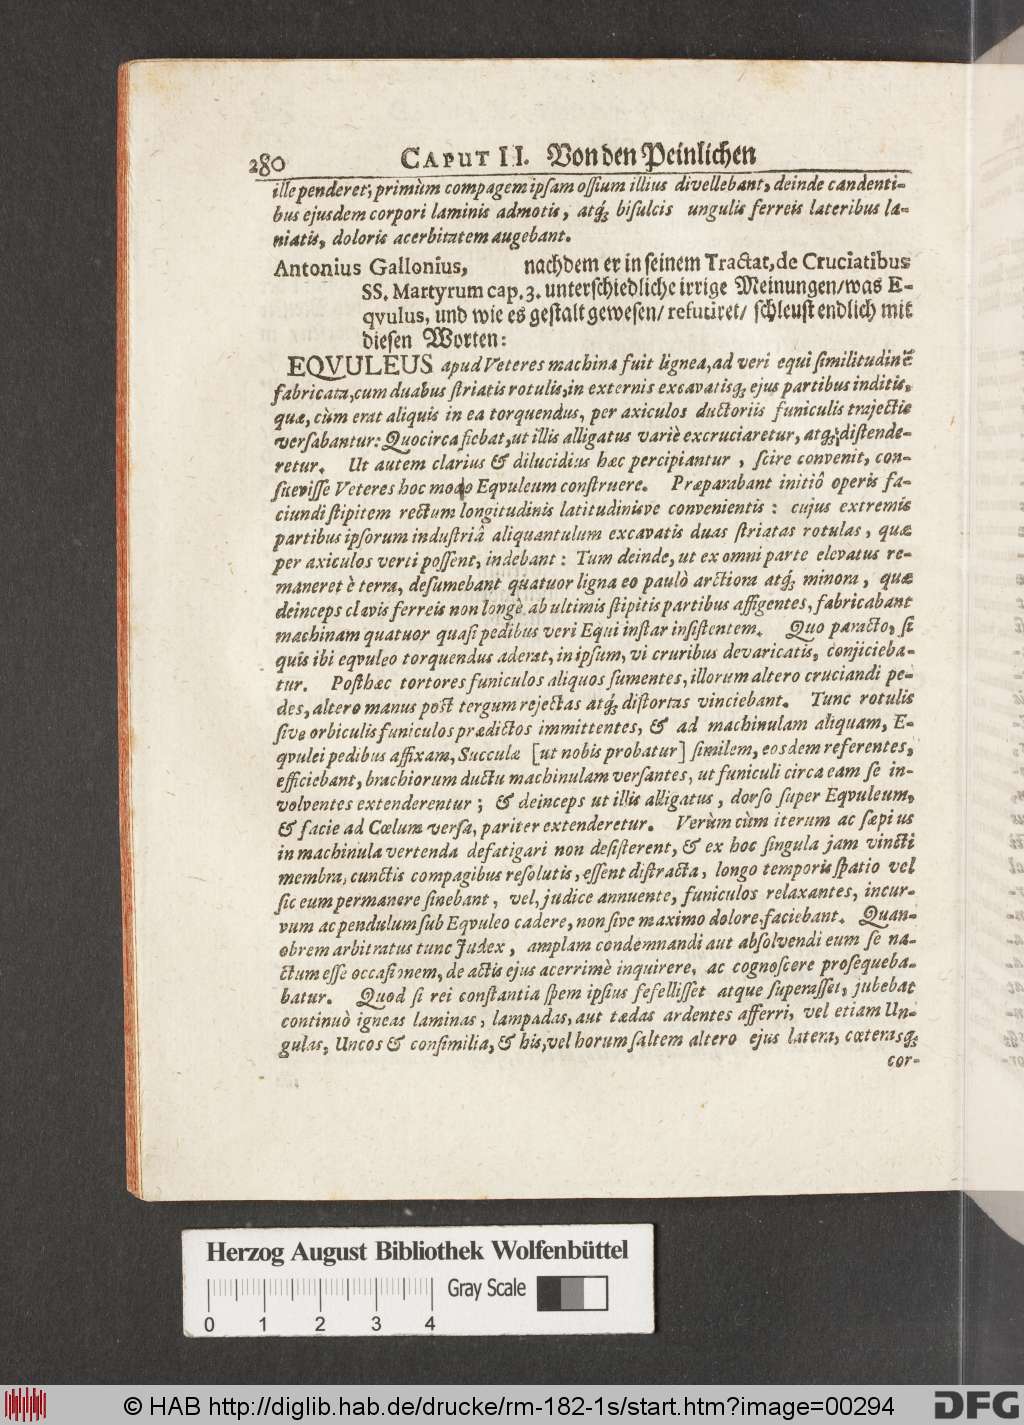 280 CAPUT II. Von den Peinlichen
ille penderet, primùm compagem ipsam ossium illius divellebant, deinde candenti-
bus ejusdem corpori laminis admotis, atq; bisulcis ungulis ferreis lateribus la-
niatis, doloris acerbitatem augebant.
Antonius Gallonius, nachdem er in seinem Tractat, de Cruciatibus
SS. Martyrum cap. 3. unterschiedliche irrige Meinungen/was E-
qvulus, und wie es gestalt gewesen/ refutiret/ schleust endlich mit
diesen Worten:
EQVULEUS apud Veteres machina fuit lignea, ad veri equi similitudinē
fabricata, cum duabus striatis rotulis, in externis excavatisq; ejus partibus inditis,
quæ, cùm erat aliquis in ea torquendus, per axiculos ductoriis funiculis trajectis
versabantur: Quocirca fiebat, ut illis alligatus variè excruciaretur, atq; distende-
retur. Ut autem clarius & dilucidius hæc percipiantur, scire convenit, con-
suevisse Veteres hoc modo Eqvuleum construere. Præparabant initiô operis fa-
ciundi stipitem rectum longitudinis latitudinisve convenientis: cujus extremis
partibus ipsorum industriâ aliquantulum excavatis duas striatas rotulas, quæ
per axiculos verti possent, indebant: Tum deinde, ut ex omni parte elevatus re-
maneret è terra, desumebant quatuor ligna eo paulò arctiora atq; minora, quæ
deinceps clavis ferreis non longè ab ultimis stipitis partibus affigentes, fabricabant
machinam quatuor quasi pedibus veri Equi instar insistentem. Quo paracto, si
quis ibi eqvuleo torquendus aderat, in ipsum, vi cruribus devaricatis, conjicieba-
tur. Posthæc tortores funiculos aliquos sumentes, illorum altero cruciandi pe-
des, altero manus post tergum rejectas atq; distortas vinciebant. Tunc rotulis
sive orbiculis funiculos prædictos immittentes, & ad machinulam aliquam, E-
qvulei pedibus affixam, Succulæ [ut nobis probatur] similem, eosdem referentes,
efficiebant, brachiorum ductu machinulam versantes, ut funiculi circa eam se in-
volventes extenderentur; & deinceps ut illis alligatus, dorso super Eqvuleum,
& facie ad Cœlum versa, pariter extenderetur. Verùm cùm iterum ac sæpius
in machinula vertenda defatigari non desisterent, & ex hoc singula jam vincti
membra, cunctis compagibus resolutis, essent distracta, longo temporis spatio vel
sic eum permanere sinebant, vel, judice annuente, funiculos relaxantes, incur-
vum ac pendulum sub Eqvuleo cadere, non sive maximo dolore, faciebant. Quan-
obrem arbitratus tunc Judex, amplam condemnandi aut absolvendi eum se na-
ctum esse occasionem, de actis ejus acerrimè inquirere, ac cognoscere prosequeba-
batur. Quod si rei constantia spem ipsius fefellisset atque superasset, jubebat
continuò igneas laminas, lampadas, aut tædas ardentes afferri, vel etiam Un-
gulas, Uncos & consimilia, & his, vel horum saltem altero ejus latera, cæterasq;
cor-
Herzog August Bibliothek Wolfenbüttel
Gray Scale
0 1 2 3 4
© HAB http://diglib.hab.de/drucke/rm-182-1s/start.htm?image=00294
DFG